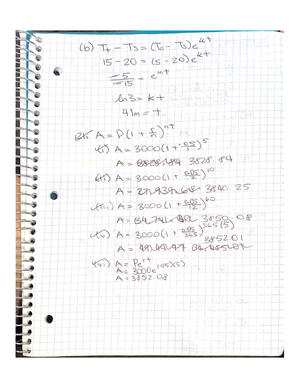 (b) T_t - T_s = (T_0 - T_s)e^kt
15 - 20 = (5 - 20)e^kt
-5/-15 = e^kt
ln3 = kt
41m = t
A = P(1 + r/n)^nt
i) A = 3000(1 + .05)^5
A = 3828.84
ii) A = 3000(1 + .05/2)^10
A = 3840.25
iii) A = 3000(1 + .05/12)^60
A = 3850.08
A = 3000(1 + .05/365)^365(5)
A = 3852.01
A = Pe^rt
A = 3000e^(.05)(5)
A = 3852.08